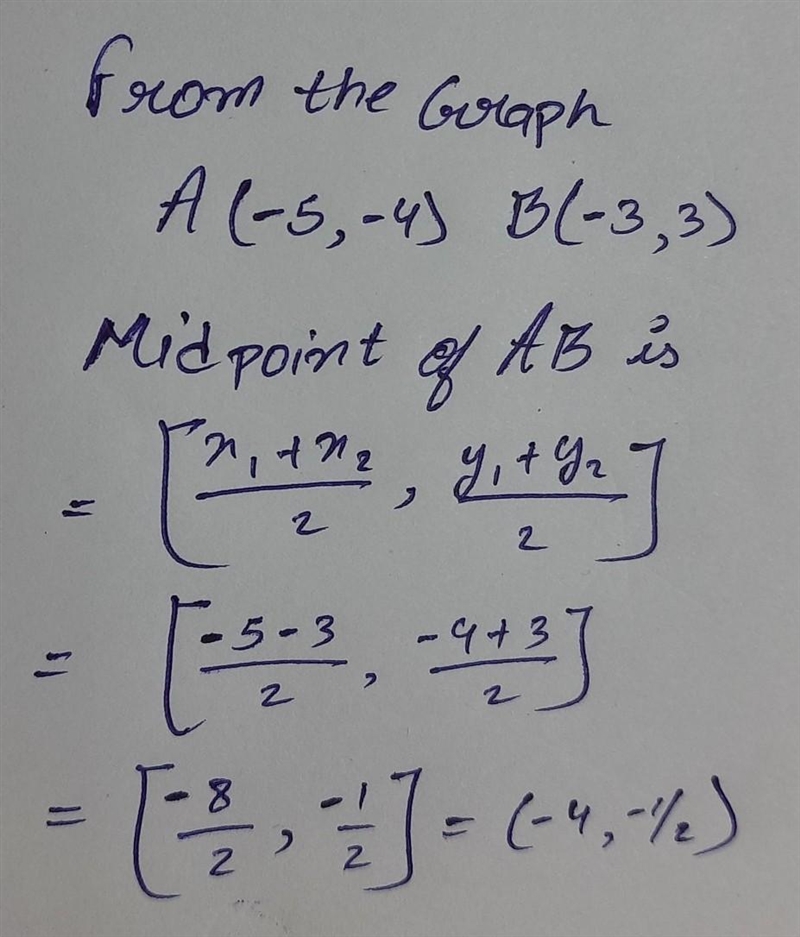 From the Graph
A (-5, -4) B(-3, 3)
Midpoint of AB is
= [x₁ + x₂ / 2 , y₁ + y₂ / 2]
= [-5 - 3 / 2 , -4 + 3 / 2]
= [-8 / 2 , -1 / 2] = (-4, -1/2)